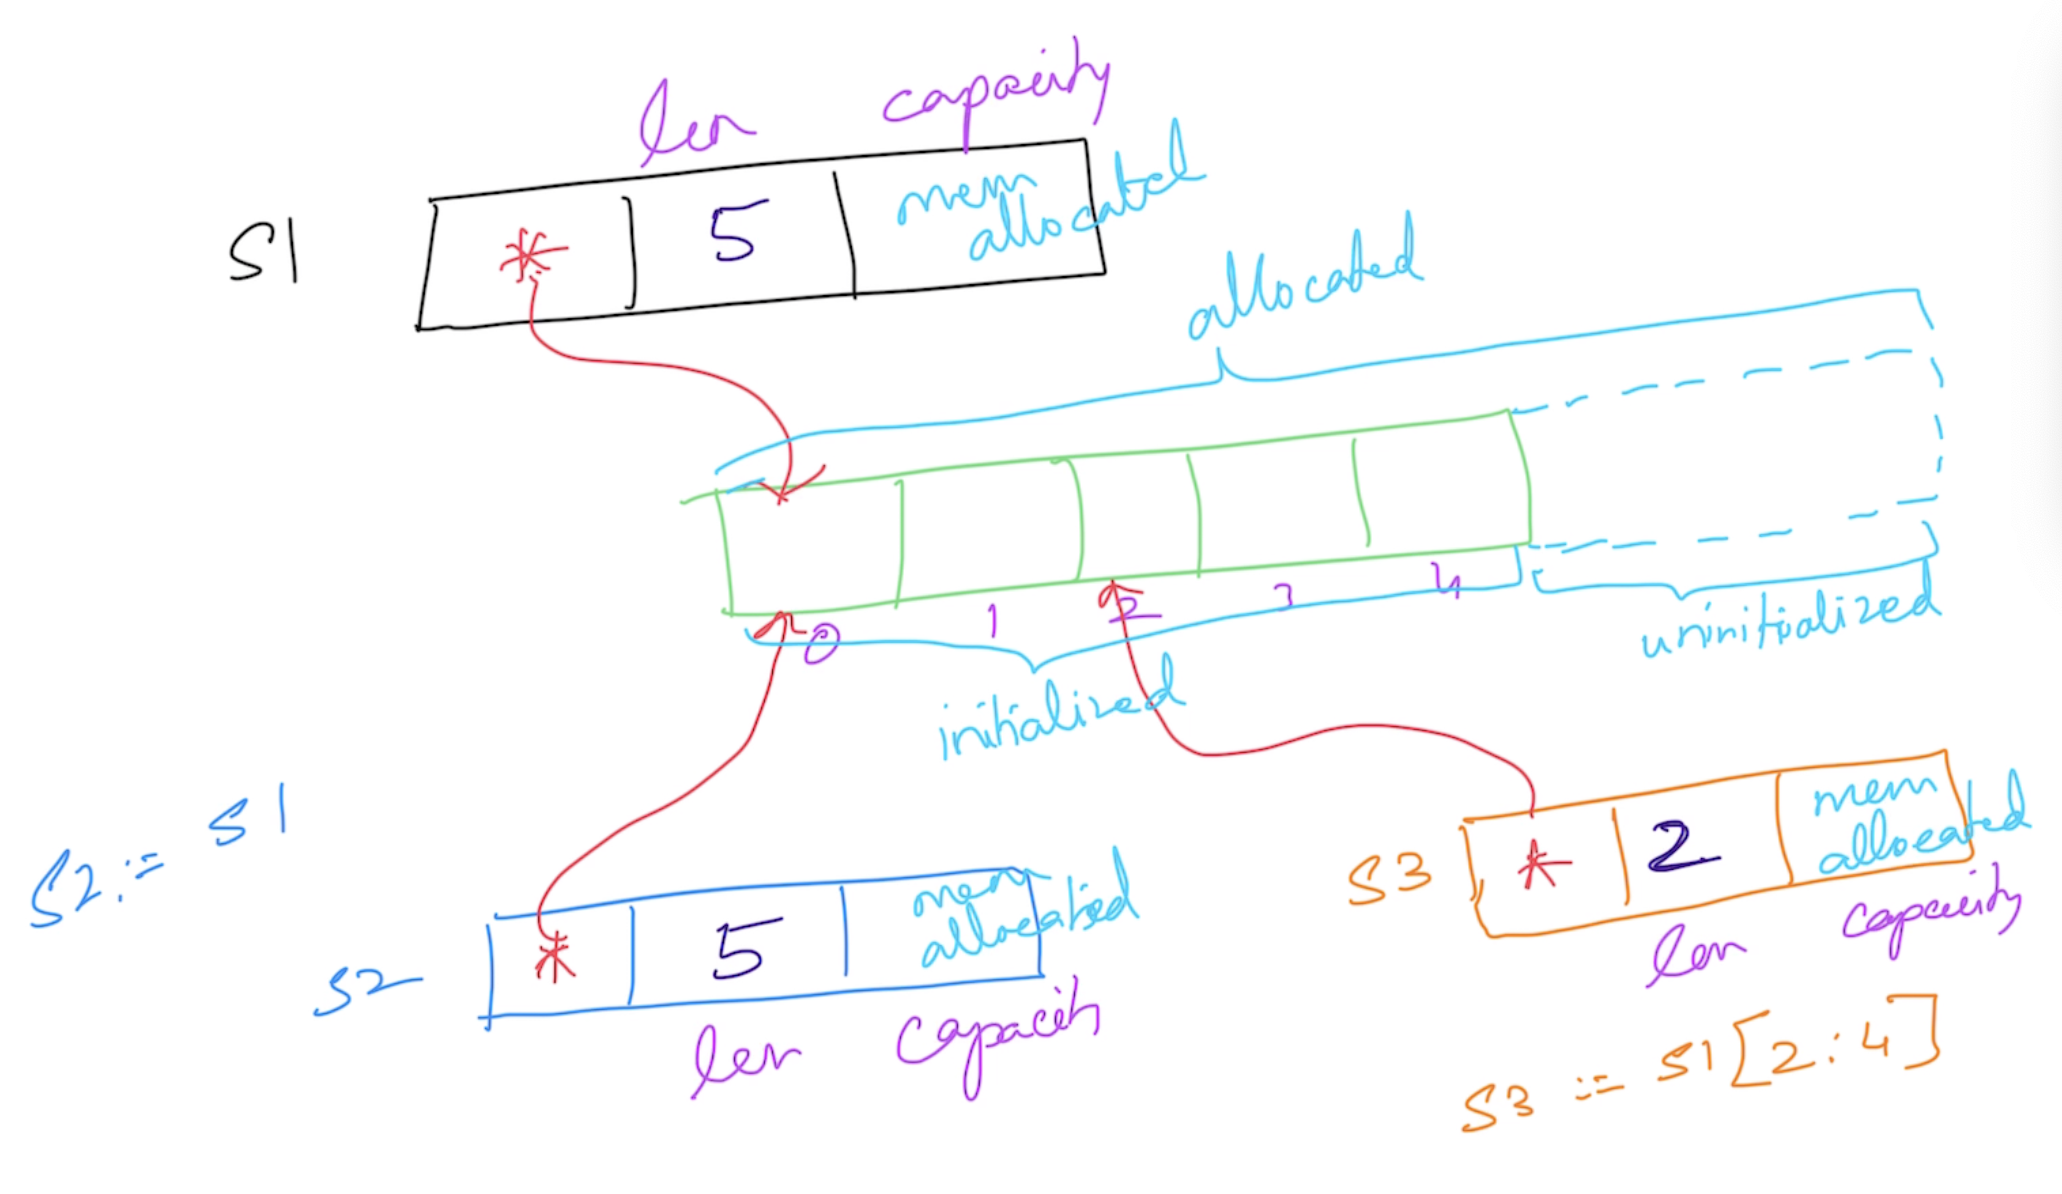 len capacity
S1 * 5 mem allocated
allocated
0 1 2 3 4
initialized
uninitialized
S2 := S1
S2 * 5 mem allocated
len capacity
S3 * 2 mem allocated
len capacity
S3 := S1[2:4]